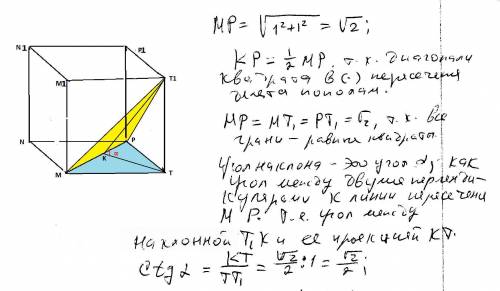 N1
P1
M1
T1
N
P
K
α
M
T
MP = √1²+1² = √2;
KP = 1/2 MP, т.к. диагонали
квадрата в (·) пересечения
делятся пополам.
MP = MT₁ = PT₁ = √2, т.к. все
грани – равные квадраты
Угол наклона – это угол α, как
угол между двумя перпенди-
кулярами к линии пересечени
MP. Т.е. угол между
наклонной T₁K и ее проекцией KT.
Ctg α = KT/TT₁ = √2/2 : 1 = √2/2;